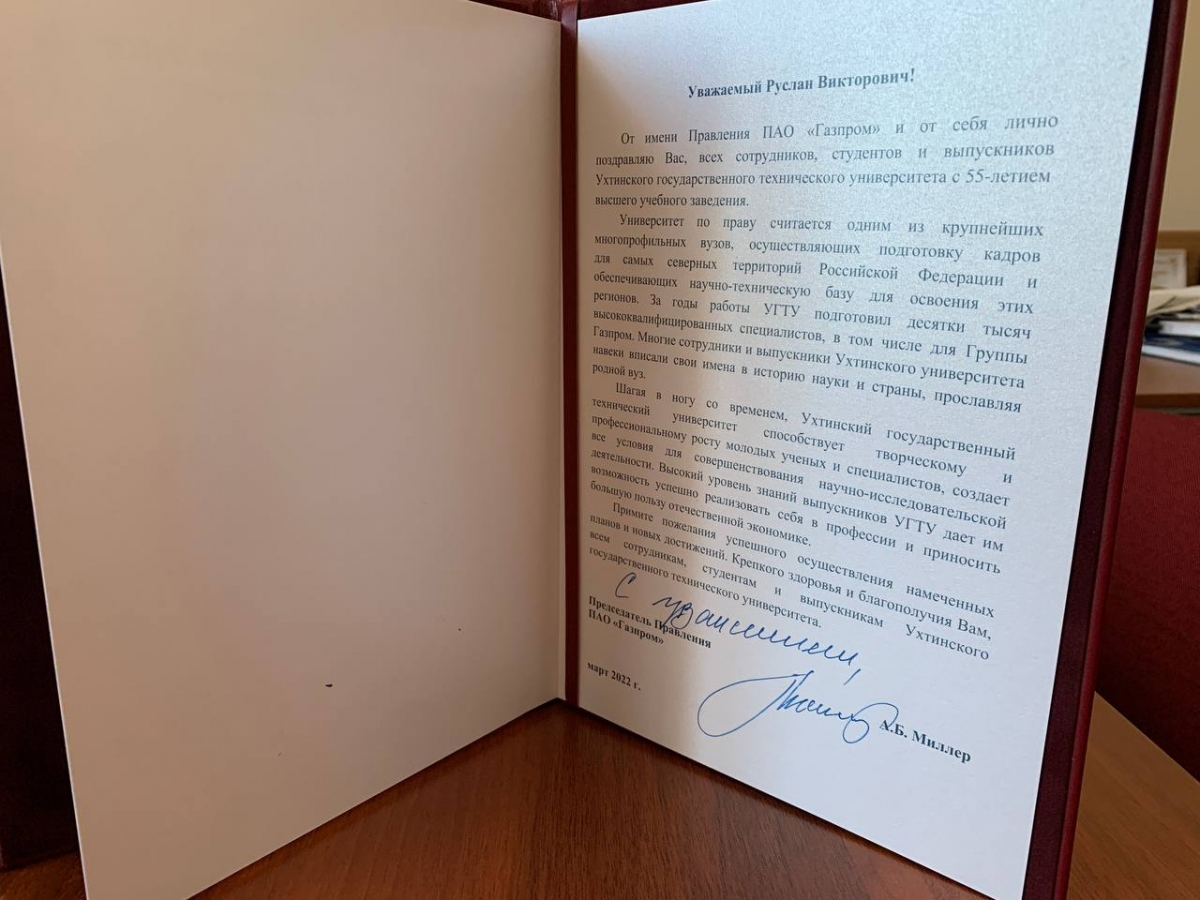 Уважаемый Руслан Викторович!
От имени Правления ПАО «Газпром» и от себя лично
поздравляю Вас, всех сотрудников, студентов и выпускников
Ухтинского государственного технического университета с 55-летием
высшего учебного заведения.
Университет по праву считается одним из крупнейших
многопрофильных вузов, осуществляющих подготовку кадров
для самых северных территорий Российской Федерации и
обеспечивающих научно-техническую базу для освоения этих
регионов. За годы работы УГТУ подготовил десятки тысяч
высококвалифицированных специалистов, в том числе для Группы
Газпром. Многие сотрудники и выпускники Ухтинского университета
навеки вписали свои имена в историю науки и страны, прославляя
родной вуз.
Шагая в ногу со временем, Ухтинский государственный
технический университет способствует творческому и
профессиональному росту молодых ученых и специалистов, создает
все условия для совершенствования научно-исследовательской
деятельности. Высокий уровень знаний выпускников УГТУ дает им
возможность успешно реализовать себя в профессии и приносить
большую пользу отечественной экономике.
Примите пожелания успешного осуществления намеченных
планов и новых достижений. Крепкого здоровья и благополучия Вам,
всем сотрудникам, студентам и выпускникам Ухтинского
государственного технического университета.
С уважением,
Председатель Правления
ПАО «Газпром»
А.Б. Миллер
март 2022 г.